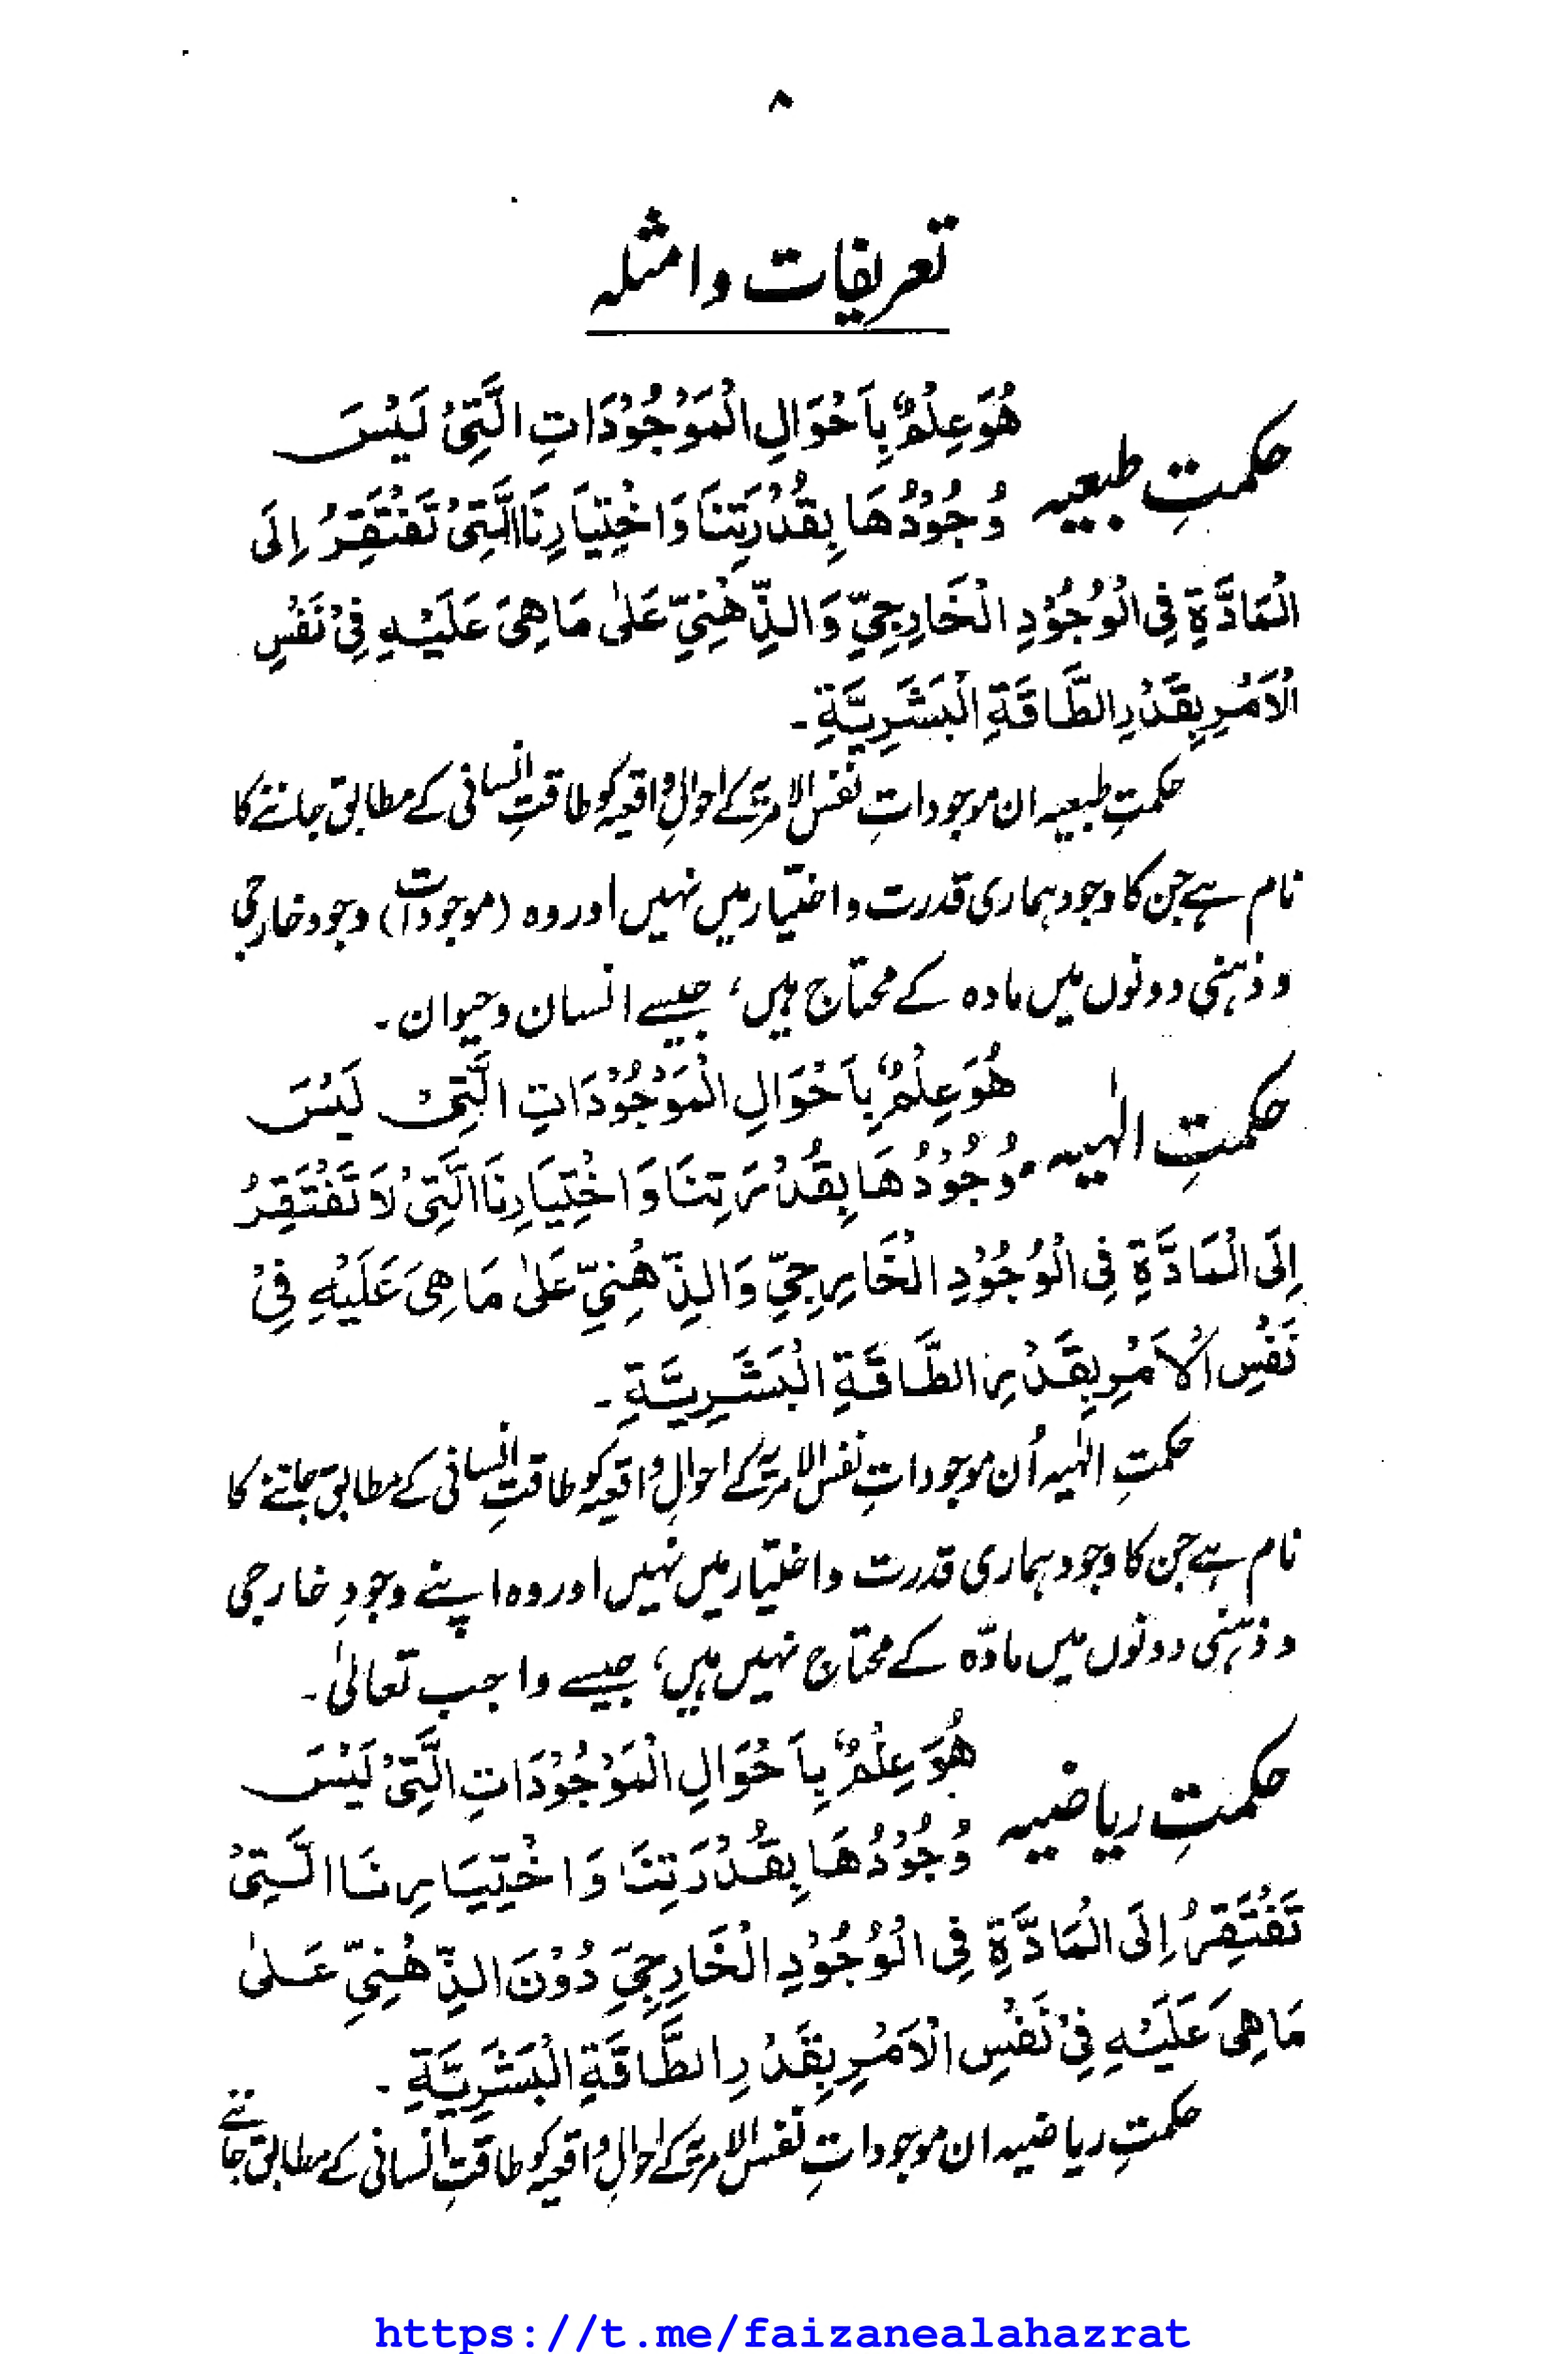 ۸
تعریفات وامثلہ
حکمتِ طبعیہ هُوَ عِلْمٌ بِاَحْوَالِ الْمَوْجُوْدَاتِ الَّتِیْ لَیْسَ
وُجُوْدُهَا بِقُدْرَتِنَا وَاخْتِیَارِنَا الَّتِیْ تَفْتَقِرُ اِلَی
الْمَادَّةِ فِی الْوُجُوْدِ الْخَارِجِیِّ وَالذِّهْنِیِّ عَلٰی مَا هِیَ عَلَیْهِ فِیْ نَفْسِ
الْاَمْرِ بِقَدْرِ الطَّاقَةِ الْبَشَرِیَّةِ۔
حکمتِ طبعیہ ان موجوداتِ نفس الامریّہ کے احوالِ واقعیہ کو طاقتِ انسانی کے مطابق جاننے کا
نام ہے جن کا وجود ہماری قدرت واختیار میں نہیں اور وہ (موجودات) وجود خارجی
وذہنی دونوں میں مادہ کے محتاج ہیں، جیسے انسان وحیوان۔
حکمتِ الٰہیہ۔ هُوَ عِلْمٌ بِاَحْوَالِ الْمَوْجُوْدَاتِ الَّتِیْ لَیْسَ
وُجُوْدُهَا بِقُدْرَتِنَا وَاخْتِیَارِنَا الَّتِیْ لَا تَفْتَقِرُ
اِلَی الْمَادَّةِ فِی الْوُجُوْدِ الْخَارِجِیِّ وَالذِّهْنِیِّ عَلٰی مَا هِیَ عَلَیْهِ فِیْ
نَفْسِ الْاَمْرِ بِقَدْرِ الطَّاقَةِ الْبَشَرِیَّةِ۔
حکمتِ الٰہیہ اُن موجوداتِ نفس الامریّہ کے احوالِ واقعیہ کو طاقتِ انسانی کے مطابق جاننے کا
نام ہے جن کا وجود ہماری قدرت واختیار میں نہیں اور وہ اپنے وجودِ خارجی
وذہنی دونوں میں مادّہ کے محتاج نہیں ہیں، جیسے واجب تعالیٰ۔
حکمتِ ریاضیہ هُوَ عِلْمٌ بِاَحْوَالِ الْمَوْجُوْدَاتِ الَّتِیْ لَیْسَ
وُجُوْدُهَا بِقُدْرَتِنَا وَاخْتِیَارِنَا الَّتِیْ
تَفْتَقِرُ اِلَی الْمَادَّةِ فِی الْوُجُوْدِ الْخَارِجِیِّ دُوْنَ الذِّهْنِیِّ عَلٰی
مَا هِیَ عَلَیْهِ فِیْ نَفْسِ الْاَمْرِ بِقَدْرِ الطَّاقَةِ الْبَشَرِیَّةِ۔
حکمتِ ریاضیہ ان موجوداتِ نفس الامریّہ کے احوالِ واقعیہ کو طاقتِ انسانی کے مطابق جاننے
https://t.me/faizanealahazrat